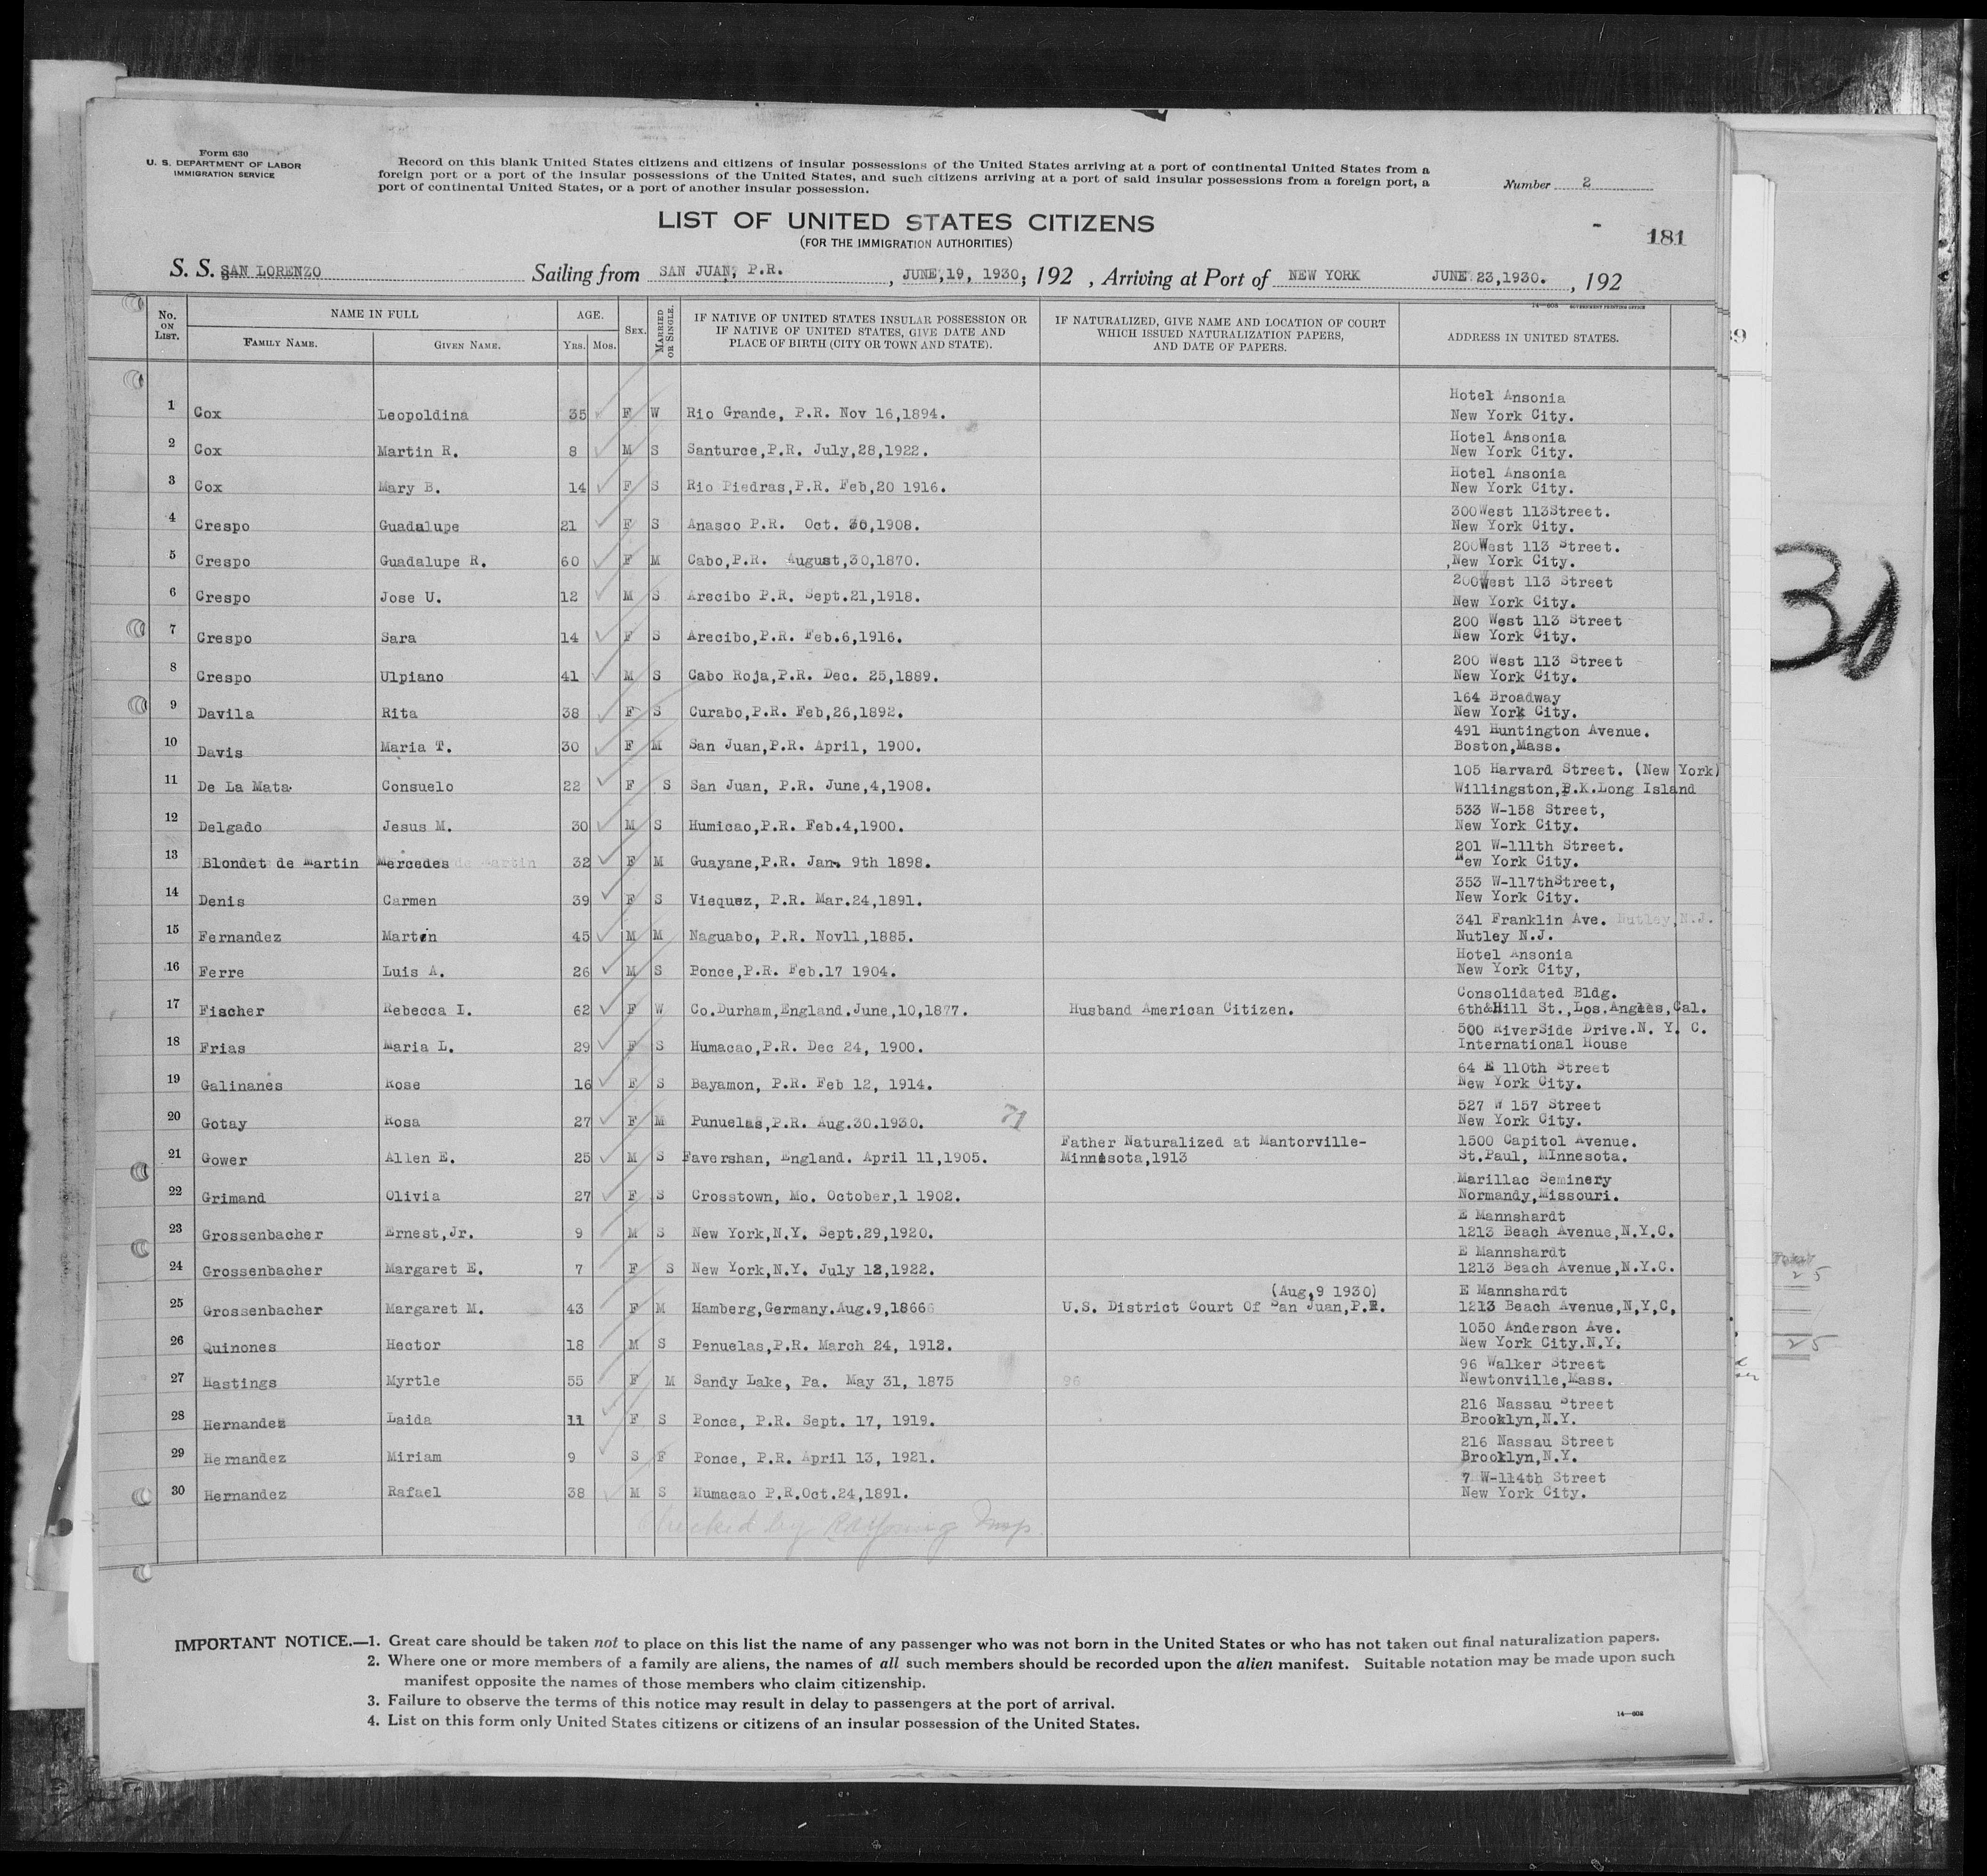 Form 630
U. S. DEPARTMENT OF LABOR
IMMIGRATION SERVICE
Record on this blank United States citizens and citizens of insular possessions of the United States arriving at a port of continental United States from a
foreign port or a port of the insular possessions of the United States, and such citizens arriving at a port of said insular possessions from a foreign port, a
port of continental United States, or a port of another insular possession.
Number 2
LIST OF UNITED STATES CITIZENS
(FOR THE IMMIGRATION AUTHORITIES)
181
S. S. SAN LORENZO Sailing from SAN JUAN, P.R. , JUNE,19, 1930; 192 , Arriving at Port of NEW YORK JUNE 23,1930. , 192
14—608 GOVERNMENT PRINTING OFFICE
No. ON LIST. NAME IN FULL FAMILY NAME. GIVEN NAME. AGE. YRS. MOS. SEX. MARRIED OR SINGLE. IF NATIVE OF UNITED STATES INSULAR POSSESSION OR IF NATIVE OF UNITED STATES, GIVE DATE AND PLACE OF BIRTH (CITY OR TOWN AND STATE). IF NATURALIZED, GIVE NAME AND LOCATION OF COURT WHICH ISSUED NATURALIZATION PAPERS, AND DATE OF PAPERS. ADDRESS IN UNITED STATES.
39
1 Cox Leopoldina 35 F W Rio Grande, P.R. Nov 16,1894. Hotel Ansonia New York City.
2 Cox Martin R. 8 M S Santurce,P.R. July,28,1922. Hotel Ansonia New York City.
3 Cox Mary B. 14 F S Rio Piedras,P.R. Feb,20 1916. Hotel Ansonia New York City.
4 Crespo Guadalupe 21 F S Anasco P.R. Oct. 30,1908. 300West 113Street. New York City.
5 Crespo Guadalupe R. 60 F M Cabo,P.R. August,30,1870. 200West 113 Street. ,New York City.
6 Crespo Jose U. 12 M S Arecibo P.R. Sept.21,1918. 200West 113 Street New York City.
7 Crespo Sara 14 F S Arecibo,P.R. Feb.6,1916. 200 West 113 Street New York City.
8 Crespo Ulpiano 41 M S Cabo Roja,P.R. Dec. 25,1889. 200 West 113 Street New York City.
9 Davila Rita 38 F S Curabo,P.R. Feb,26,1892. 164 Broadway New York City.
10 Davis Maria T. 30 F M San Juan,P.R. April, 1900. 491 Huntington Avenue. Boston,Mass.
11 De La Mata Consuelo 22 F S San Juan, P.R. June,4,1908. 105 Harvard Street. (New York) Willingston,B.K.Long Island
12 Delgado Jesus M. 30 M S Humicao,P.R. Feb.4,1900. 533 W-158 Street, New York City.
13 Blondet de Martin Mercedes 32 F M Guayane,P.R. Jan. 9th 1898. 201 W-111th Street. New York City.
14 Denis Carmen 39 F S Viequez, P.R. Mar.24,1891. 353 W-117thStreet, New York City.
15 Fernandez Martin 45 M M Naguabo, P.R. Nov11,1885. 341 Franklin Ave. Nutley,N.J. Nutley N.J.
16 Ferre Luis A. 26 M S Ponce,P.R. Feb.17 1904. Hotel Ansonia New York City,
17 Fischer Rebecca I. 62 F W Co.Durham,England.June,10,1877. Husband American Citizen. Consolidated Bldg. 6th&Hill St.,Los.Angles,Cal.
18 Frias Maria L. 29 F S Humacao,P.R. Dec 24, 1900. 500 RiverSide Drive.N. Y. C. International House
19 Galinanes Rose 16 F S Bayamon, P.R. Feb 12, 1914. 64 E 110th Street New York City.
20 Gotay Rosa 27 F M Punuelas,P.R. Aug.30.1930. 71 527 W 157 Street New York City.
21 Gower Allen E. 25 M S Favershan, England. April 11,1905. Father Naturalized at Mantorville- Minnesota,1913 1500 Capitol Avenue. St.Paul, MInnesota.
22 Grimand Olivia 27 F S Crosstown, Mo. October,1 1902. Marillac Seminery Normandy,Missouri.
23 Grossenbacher Ernest,Jr. 9 M S New York,N.Y. Sept.29,1920. E Mannshardt 1213 Beach Avenue,N.Y.C.
24 Grossenbacher Margaret E. 7 F S New York,N.Y. July 12,1922. E Mannshardt 1213 Beach Avenue,N.Y.C.
25 Grossenbacher Margaret M. 43 F M Hamberg,Germany.Aug.9,18666 (Aug,9 1930) U.S. District Court Of San Juan,P.R. E Mannshardt 1213 Beach Avenue,N,Y,C,
26 Quinones Hector 18 M S Penuelas,P.R. March 24, 1912. 1050 Anderson Ave. New York City.N.Y.
27 Hastings Myrtle 55 F M Sandy Lake, Pa. May 31, 1875 96 96 Walker Street Newtonville,Mass.
28 Hernandez Laida 11 F S Ponce, P.R. Sept. 17, 1919. 216 Nassau Street Brooklyn,N.Y.
29 Hernandez Miriam 9 S F Ponce, P.R. April 13, 1921. 216 Nassau Street Brooklyn,N.Y.
30 Hernandez Rafael 38 M S Humacao P.R.Oct.24,1891. 7 W-114th Street New York City.
Checked by Insp.
30
25
25
IMPORTANT NOTICE.—1. Great care should be taken not to place on this list the name of any passenger who was not born in the United States or who has not taken out final naturalization papers.
2. Where one or more members of a family are aliens, the names of all such members should be recorded upon the alien manifest. Suitable notation may be made upon such
manifest opposite the names of those members who claim citizenship.
3. Failure to observe the terms of this notice may result in delay to passengers at the port of arrival.
4. List on this form only United States citizens or citizens of an insular possession of the United States.
14—608